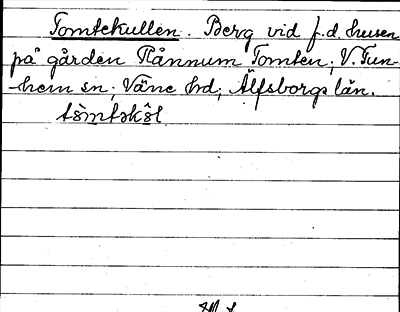 Tomtekullen. Berg vid f.d. husen
på gården Rånnum Tomten, V. Tun-
hem sn, Väne hd, Älfsborgs län.